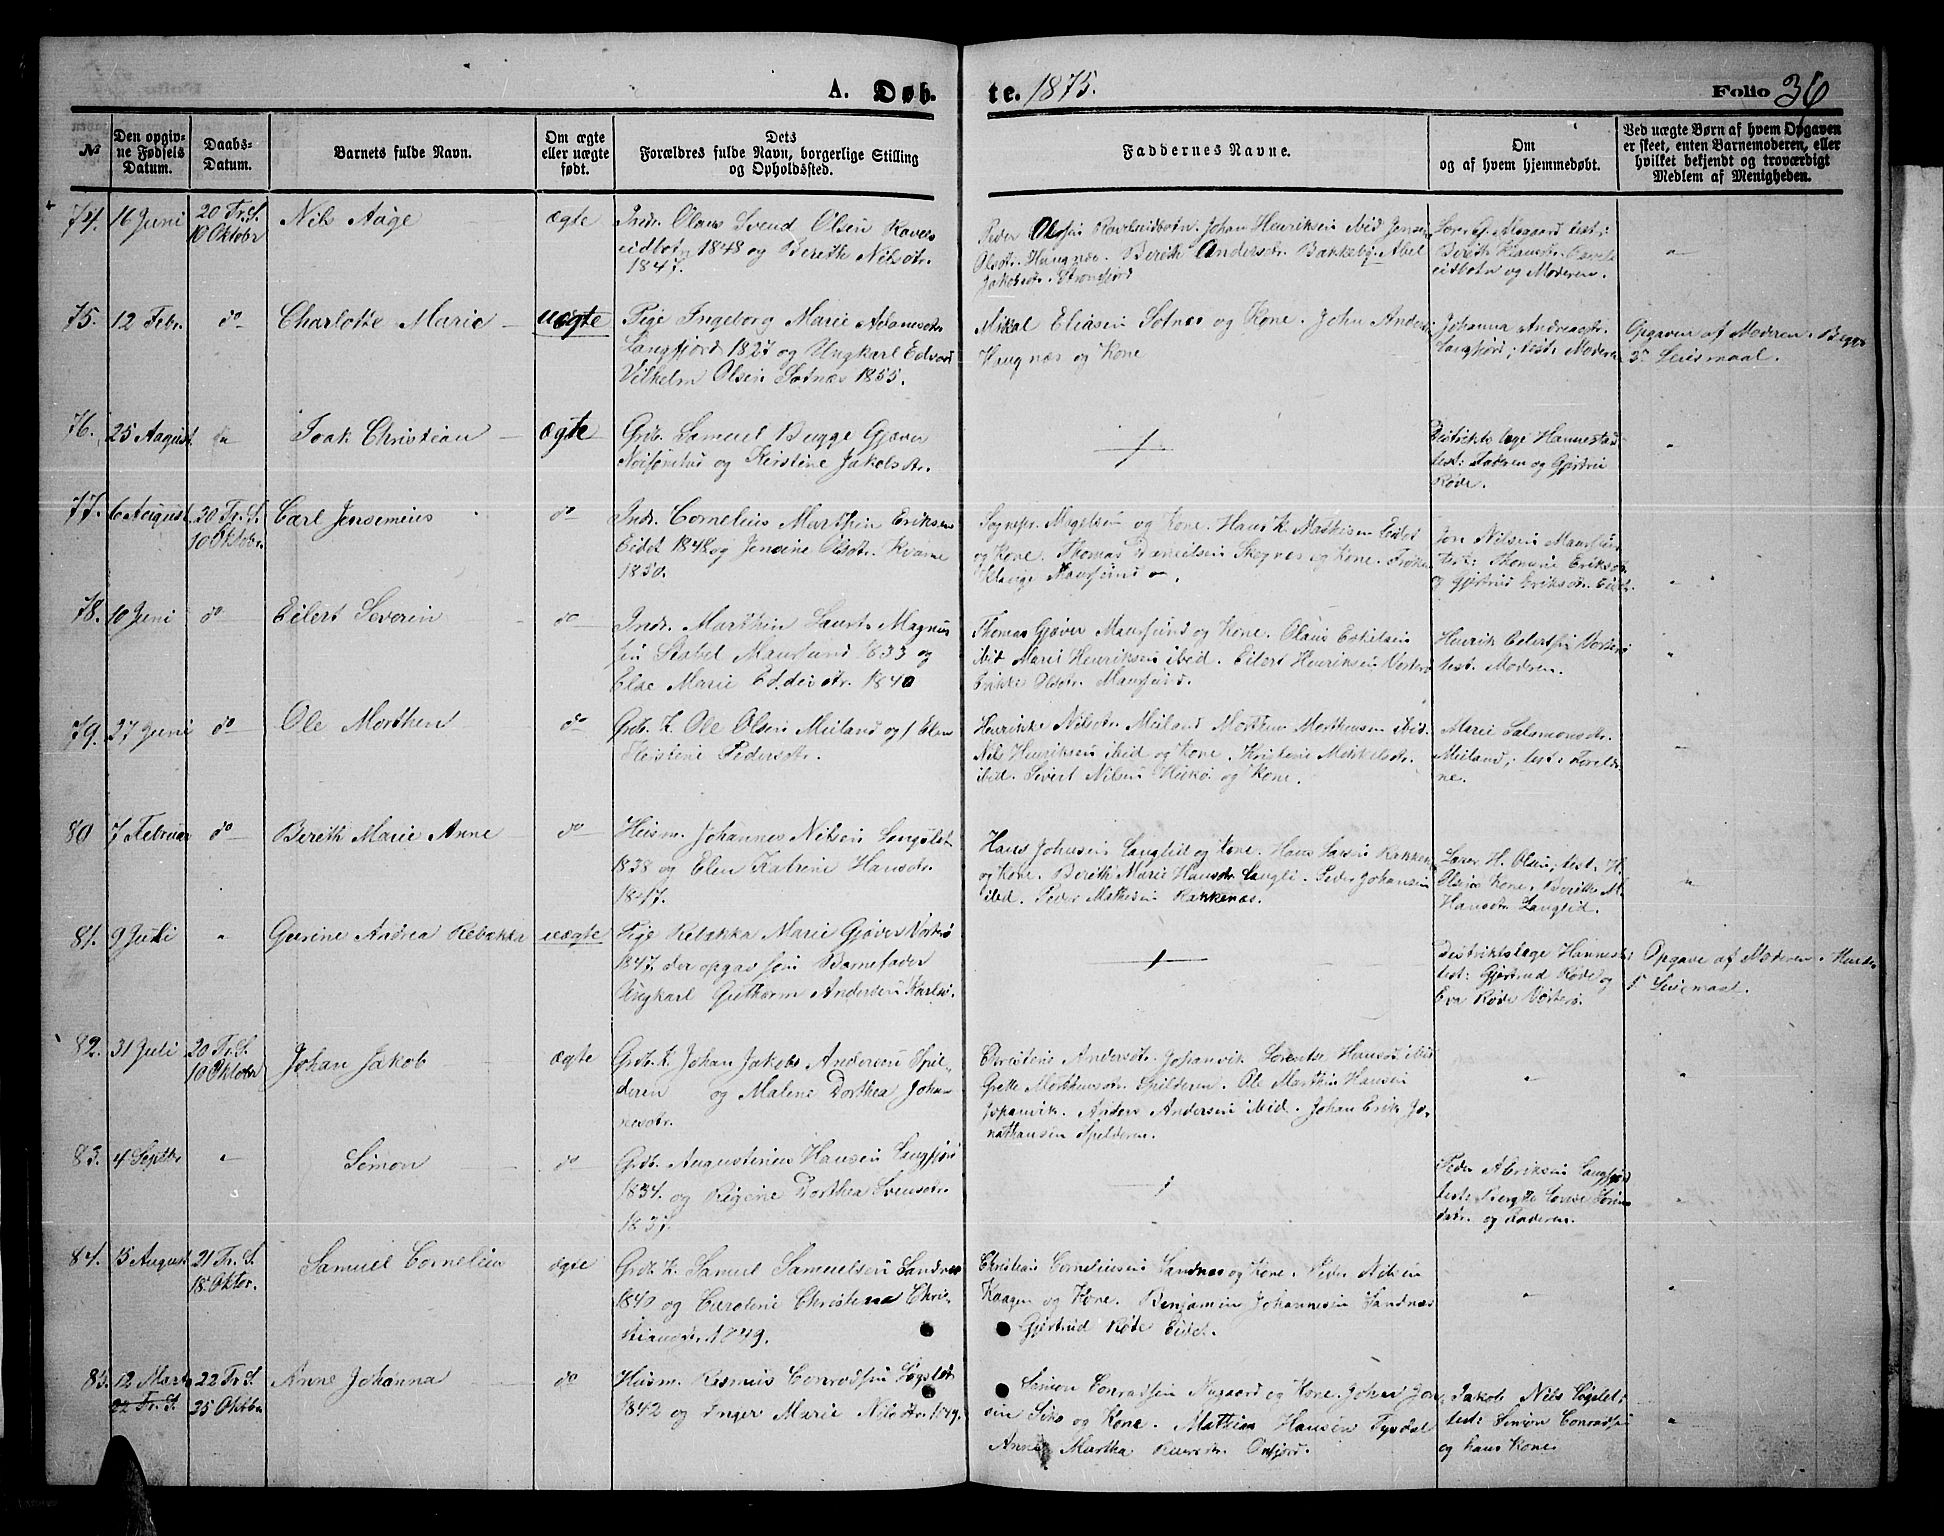 A. Døb- te. 1875. Folio 36
№
Den opgiv-
ne Fødsels
Datum.
Daabs-
Datum.
Barnets fulde Navn.
Om ægte
eller uægte
født.
Dets
Forældres fulde Navn, borgerlige Stilling
og Opholdssted.
Faddernes Navne.
Om
og af hvem hjemmedøbt.
Ved uægte Børn af hvem Opgaven
er skeet, enten Barnemoderen, eller
hvilket bekjendt og troværdigt
Medlem af Menigheden.
74. 16 Juni
20 Tr. S.
10 Oktobr
Nils Aage
ægte
Indr. Olaus Svend Olsen
1848 og Bereth Nilsdtr.
1847.
Peder Olsen Johan Henriksen ibid
Olsdtr. Haugnæs. Berith Andersdtr. Bakkeby. Abel
Jakobsdtr. Storfjord
test:
og Moderen.
75. 12 Febr. do
Charlotte Marie
uægte
Pige Ingeborg Marie Adamsdtr.
Langfjord 1827 og Ungkarl Edvard
Vilhelm Olsen Sotnæs 1855.
Mikal Eliasen Sotnæs og Kone. John Anders.
Haugnæs og Kone
Johanna Andreasdtr.
Langfjord; test: Moderen
Opgaven af Moderen. Begges
3die Leiermaal.
76. 25 August do
Isak Christian
ægte
Grdb. Samuel Bugge Gjøver
og Kirstine Jakobsdtr.
Distriktslæge Hannestad
test: Faderen og Gjertrud
Røde.
77. 6 August
20 Tr. S.
10 Oktobr.
Carl Jensenius
do
Indr. Cornelius Marthin Eriksen
Eidet 1848 og Jensine Olsdtr. Kvæne
1850.
Sognepr. Mygelsen og Kone. Hans K. Mathisen Eidet
og Kone. Thomas Danielsen Skognæs og Kone. Frøken
Klauge Maursund.
Jon Nilsen Maursund
test: Thomine Eriksdtr.
og Gjertrud Eriksdtr. Eidet.
78. 10 Juni do
Eilert Severin
do
Indr. Marthin Laurits Magnus-
sen Stabel Maursund 1833 og
Else Marie 1840
Thomas Gjøver Maursund og Kone. Olaus Eskelsen
ibid Marie Henriksen ibid. Eilert Henriksen Vorterø
Erikke Olsdtr. Maursund.
Henrik Eilertsen Vorterø
test. Moderen.
79. 27 Juni do
Ole Morthen
do
Grdb. K. Ole Olsen Meiland og Elen
Kirstine Pedersdtr.
Henrikke Nilsdtr. Meiland Morthen Morthensen ibid.
Nils Henriksen ibid og Kone. Kristine Mikkelsdtr.
ibid. Sivert Nilsen Hukø og Kone.
Marie Salamonsdtr.
Meiland; test: Foreldre-
ne.
80 7 Februar do
Bereth Marie Anne
do
Husm. Johannes Nilsen Langslet
1838 og Elen Katrine Hansdtr.
1847.
Hans Johnsen Langlid og Kone. Hans Larsen Rakkenæs
og Kone. Berith Marie Hansdtr. Langli. Peder Johansen
ibid. Peder Mathisen Rakkenæs.
Lærer H. Olsen; test: H.
Olsens Kone. Berith M.
Hansdtr. Langlid.
81. 9 Juli
Gurine Andrea Rebekka
uægte
Pige Rebækka Marie Gjøver Vorterø
1847. der opgav som Barnefader
Ungkarl Guthorm Andersen Karlsø.
Distriktslæge Hannestad
test: Gjertrud Røde og
Eva Røde Vorterø.
Opgave af Moderen.
Leiermaal.
82. 31 Juli
20 Tr. S.
10 Oktober
Johan Jakob
ægte
Grdb. K. Johan Jakob Andersen Spil-
deren og Malene Dorthea Johan-
nesdtr.
Christine Andersdtr. Jøpanvik Lorentse Hansdtr. ibid
Grethe Morthensdtr. Spilderen. Ole Marthin Hansen
Jøpanvik. Anders Andersen ibid. Johan Erik Jo-
nathansen Spilderen.
83. 4 Septbr
Simon
do
Grdb. Augustinus Hansen Langfjord
1834. og Regine Dorthea Svensdtr.
1837.
Peder Langfjord
test: Bergitte Lovise
og Faderen.
84. 15 August
21 Tr. S.
18 Oktbr.
Samuel Cornelius
ægte
Grdb. K. Samuel Samuelsen Sandnæs
1840 og Caroline Christina Chri-
stiansdtr. 1849.
Christian Corneliussen Sandnæs og Kone. Peder Nilsen
Kaagen og Kone. Benjamin Johannesen Sandnæs
Gjertrud Røde Eidet.
85. 12 Marts
22 Tr. S.
22 Tr. S.
25 Oktbr.
Anne Johanna
do
Husm. Rasmus Conradsen Søgslet
1842 og Inger Marie Nilsdtr. 1849.
Simon Conradsen og Kone. Johan Jon-
sen og Kone. Mathias Hansen Tysdal
Anne Martha Oxfjord.
Jakob Nils Søgslet;
test: Simon Conradsen
og hans Kone